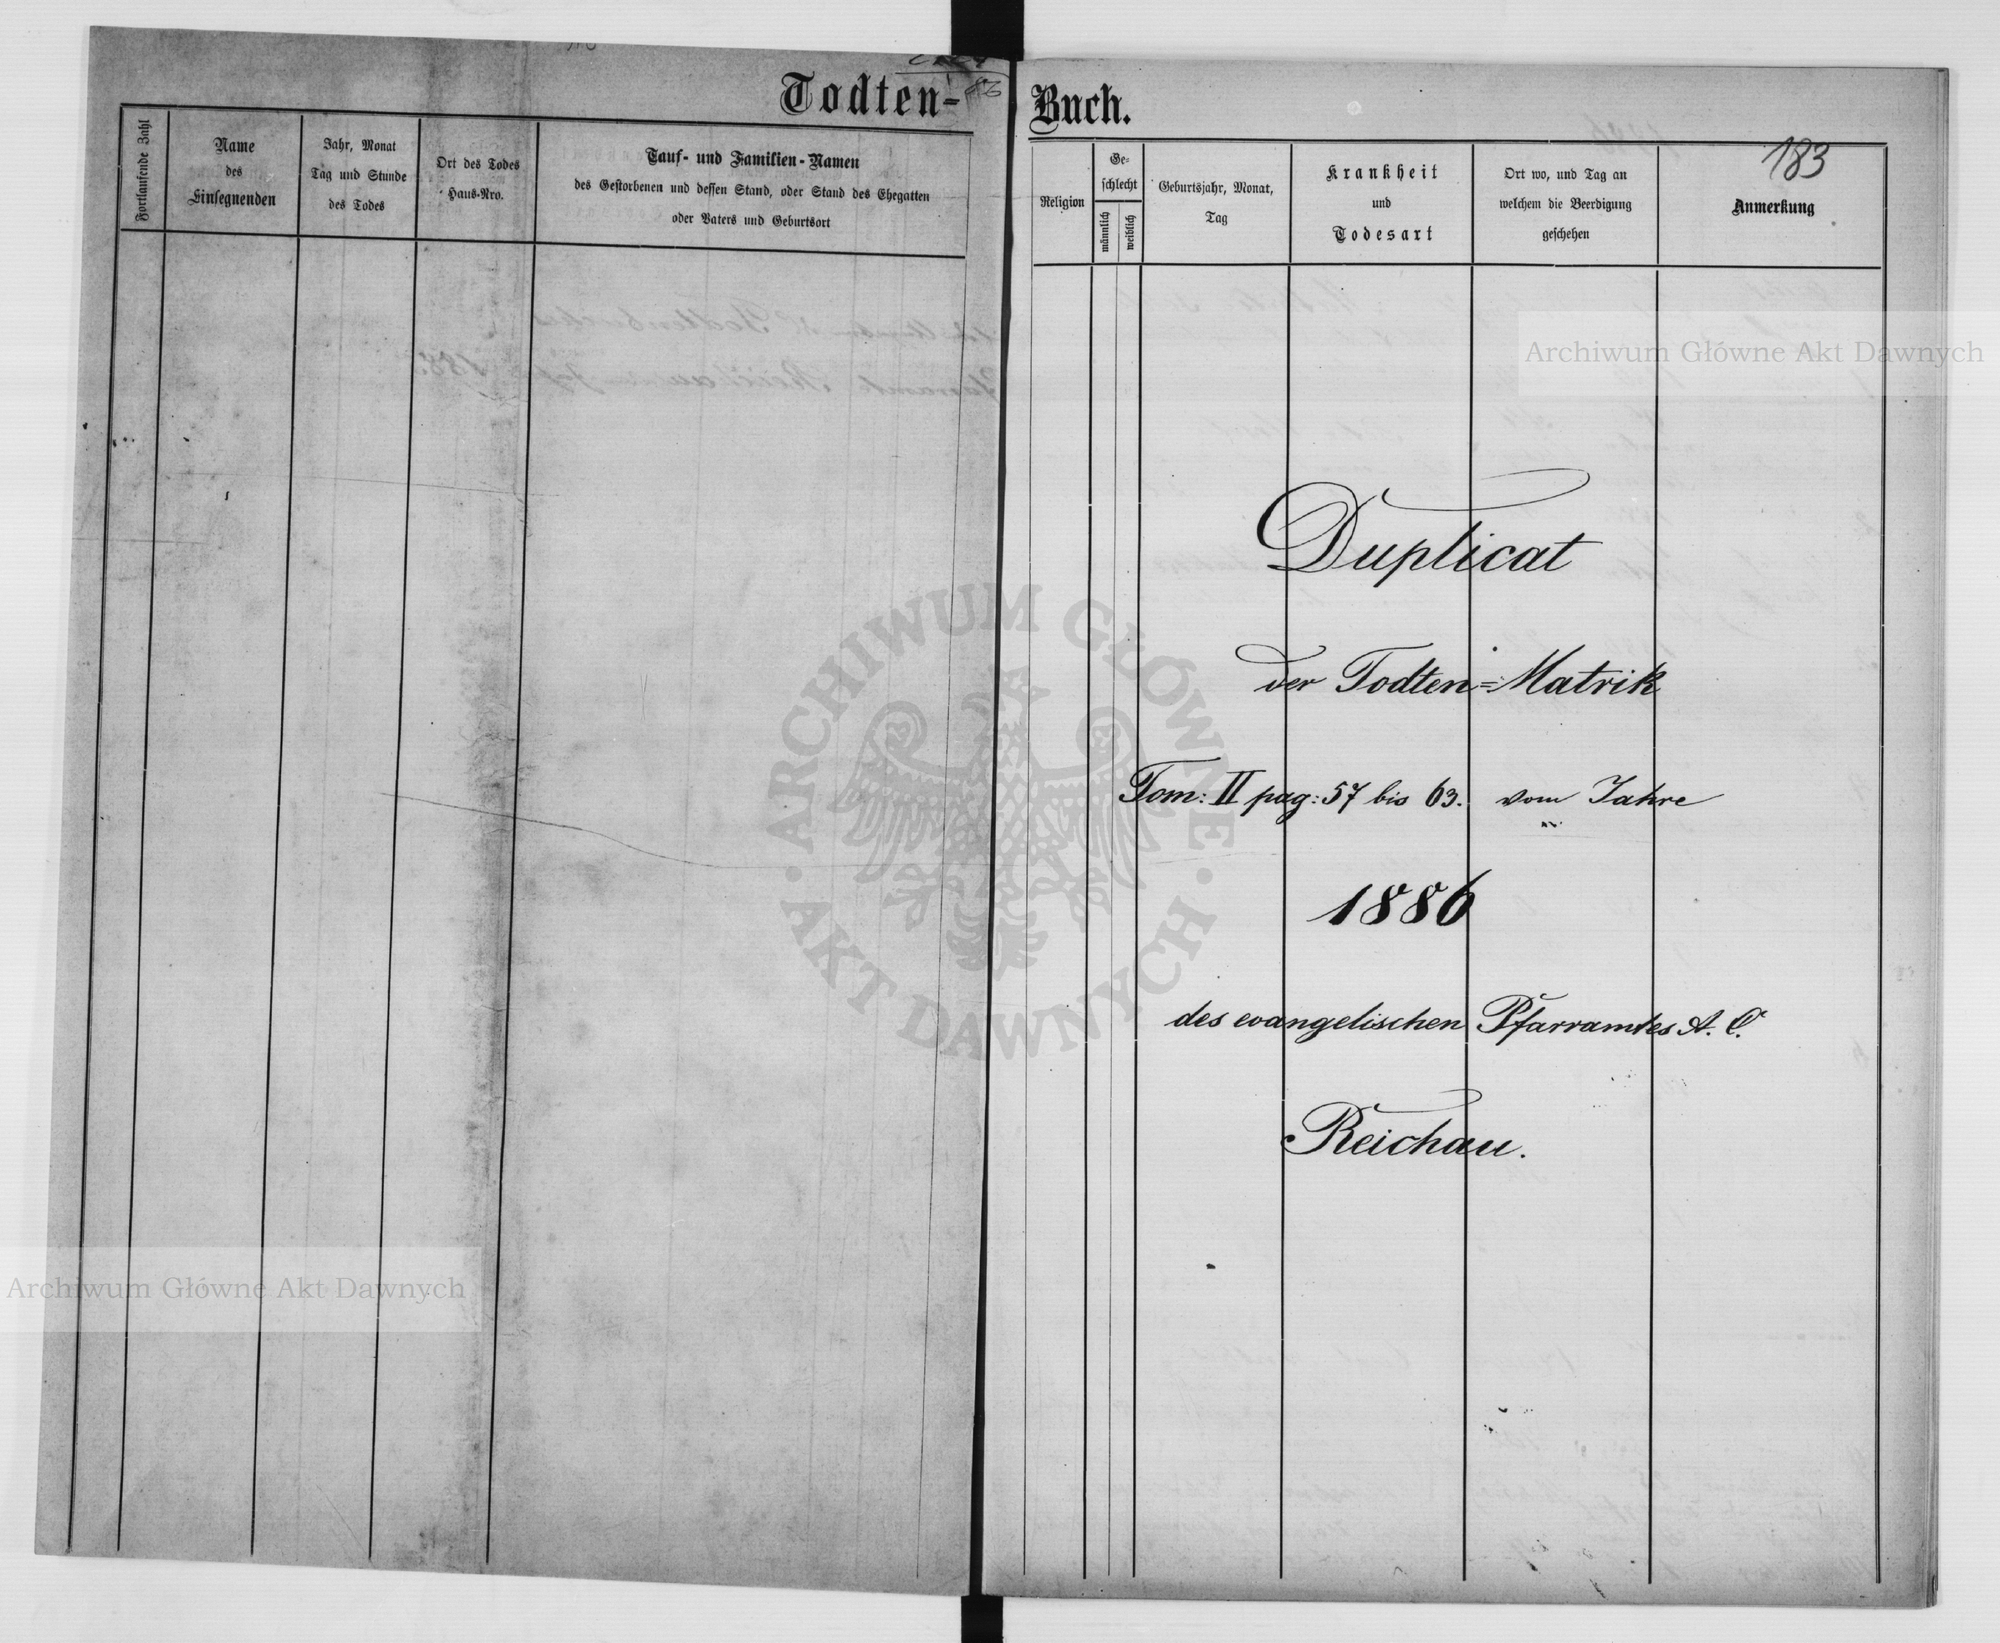 Todten-
Fortlaufende Zahl
Name
des
Einsegnenden
Jahr, Monat
Tag und Stunde
des Todes
Ort des Todes
Haus-Nro.
Tauf- und Familien-Namen
des Gestorbenen und dessen Stand, oder Stand des Ehegatten
oder Vaters und Geburtsort
Buch.
183
Religion
Ge-
schlecht
männlich
weiblich
Geburtsjahr, Monat,
Tag
Krankheit
und
Todesart
Ort wo, und Tag an
welchem die Beerdigung
geschehen
Anmerkung
Archiwum Główne Akt Dawnych
Duplicat
der Todten=Matrik
Tom: II pag: 57 bis 63. vom Jahre
1886
des evangelischen Pfarramtes A. C.
Reichau.
ARCHIWUM GŁÓWNE
AKT DAWNYCH
Archiwum Główne Akt Dawnych